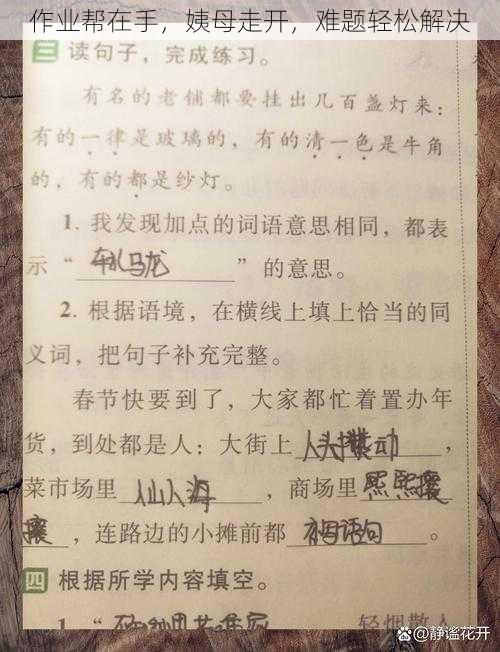 作业帮在手，姨母走开，难题轻松解决
三 读句子，完成练习。
有名的老铺都要挂出几百盏灯来：
有的一律是玻璃的，有的清一色是牛角
的，有的都是纱灯。
1. 我发现加点的词语意思相同，都表
示“车水马龙”的意思。
2. 根据语境，在横线上填上恰当的同
义词，把句子补充完整。
春节快要到了，大家都忙着置办年
货，到处都是人：大街上人头攒动，
菜市场里人山人海，商场里熙熙攘
攘，连路边的小摊前都语句。
四 根据所学内容填空。
1. “ 轻烟散
@静谧花开